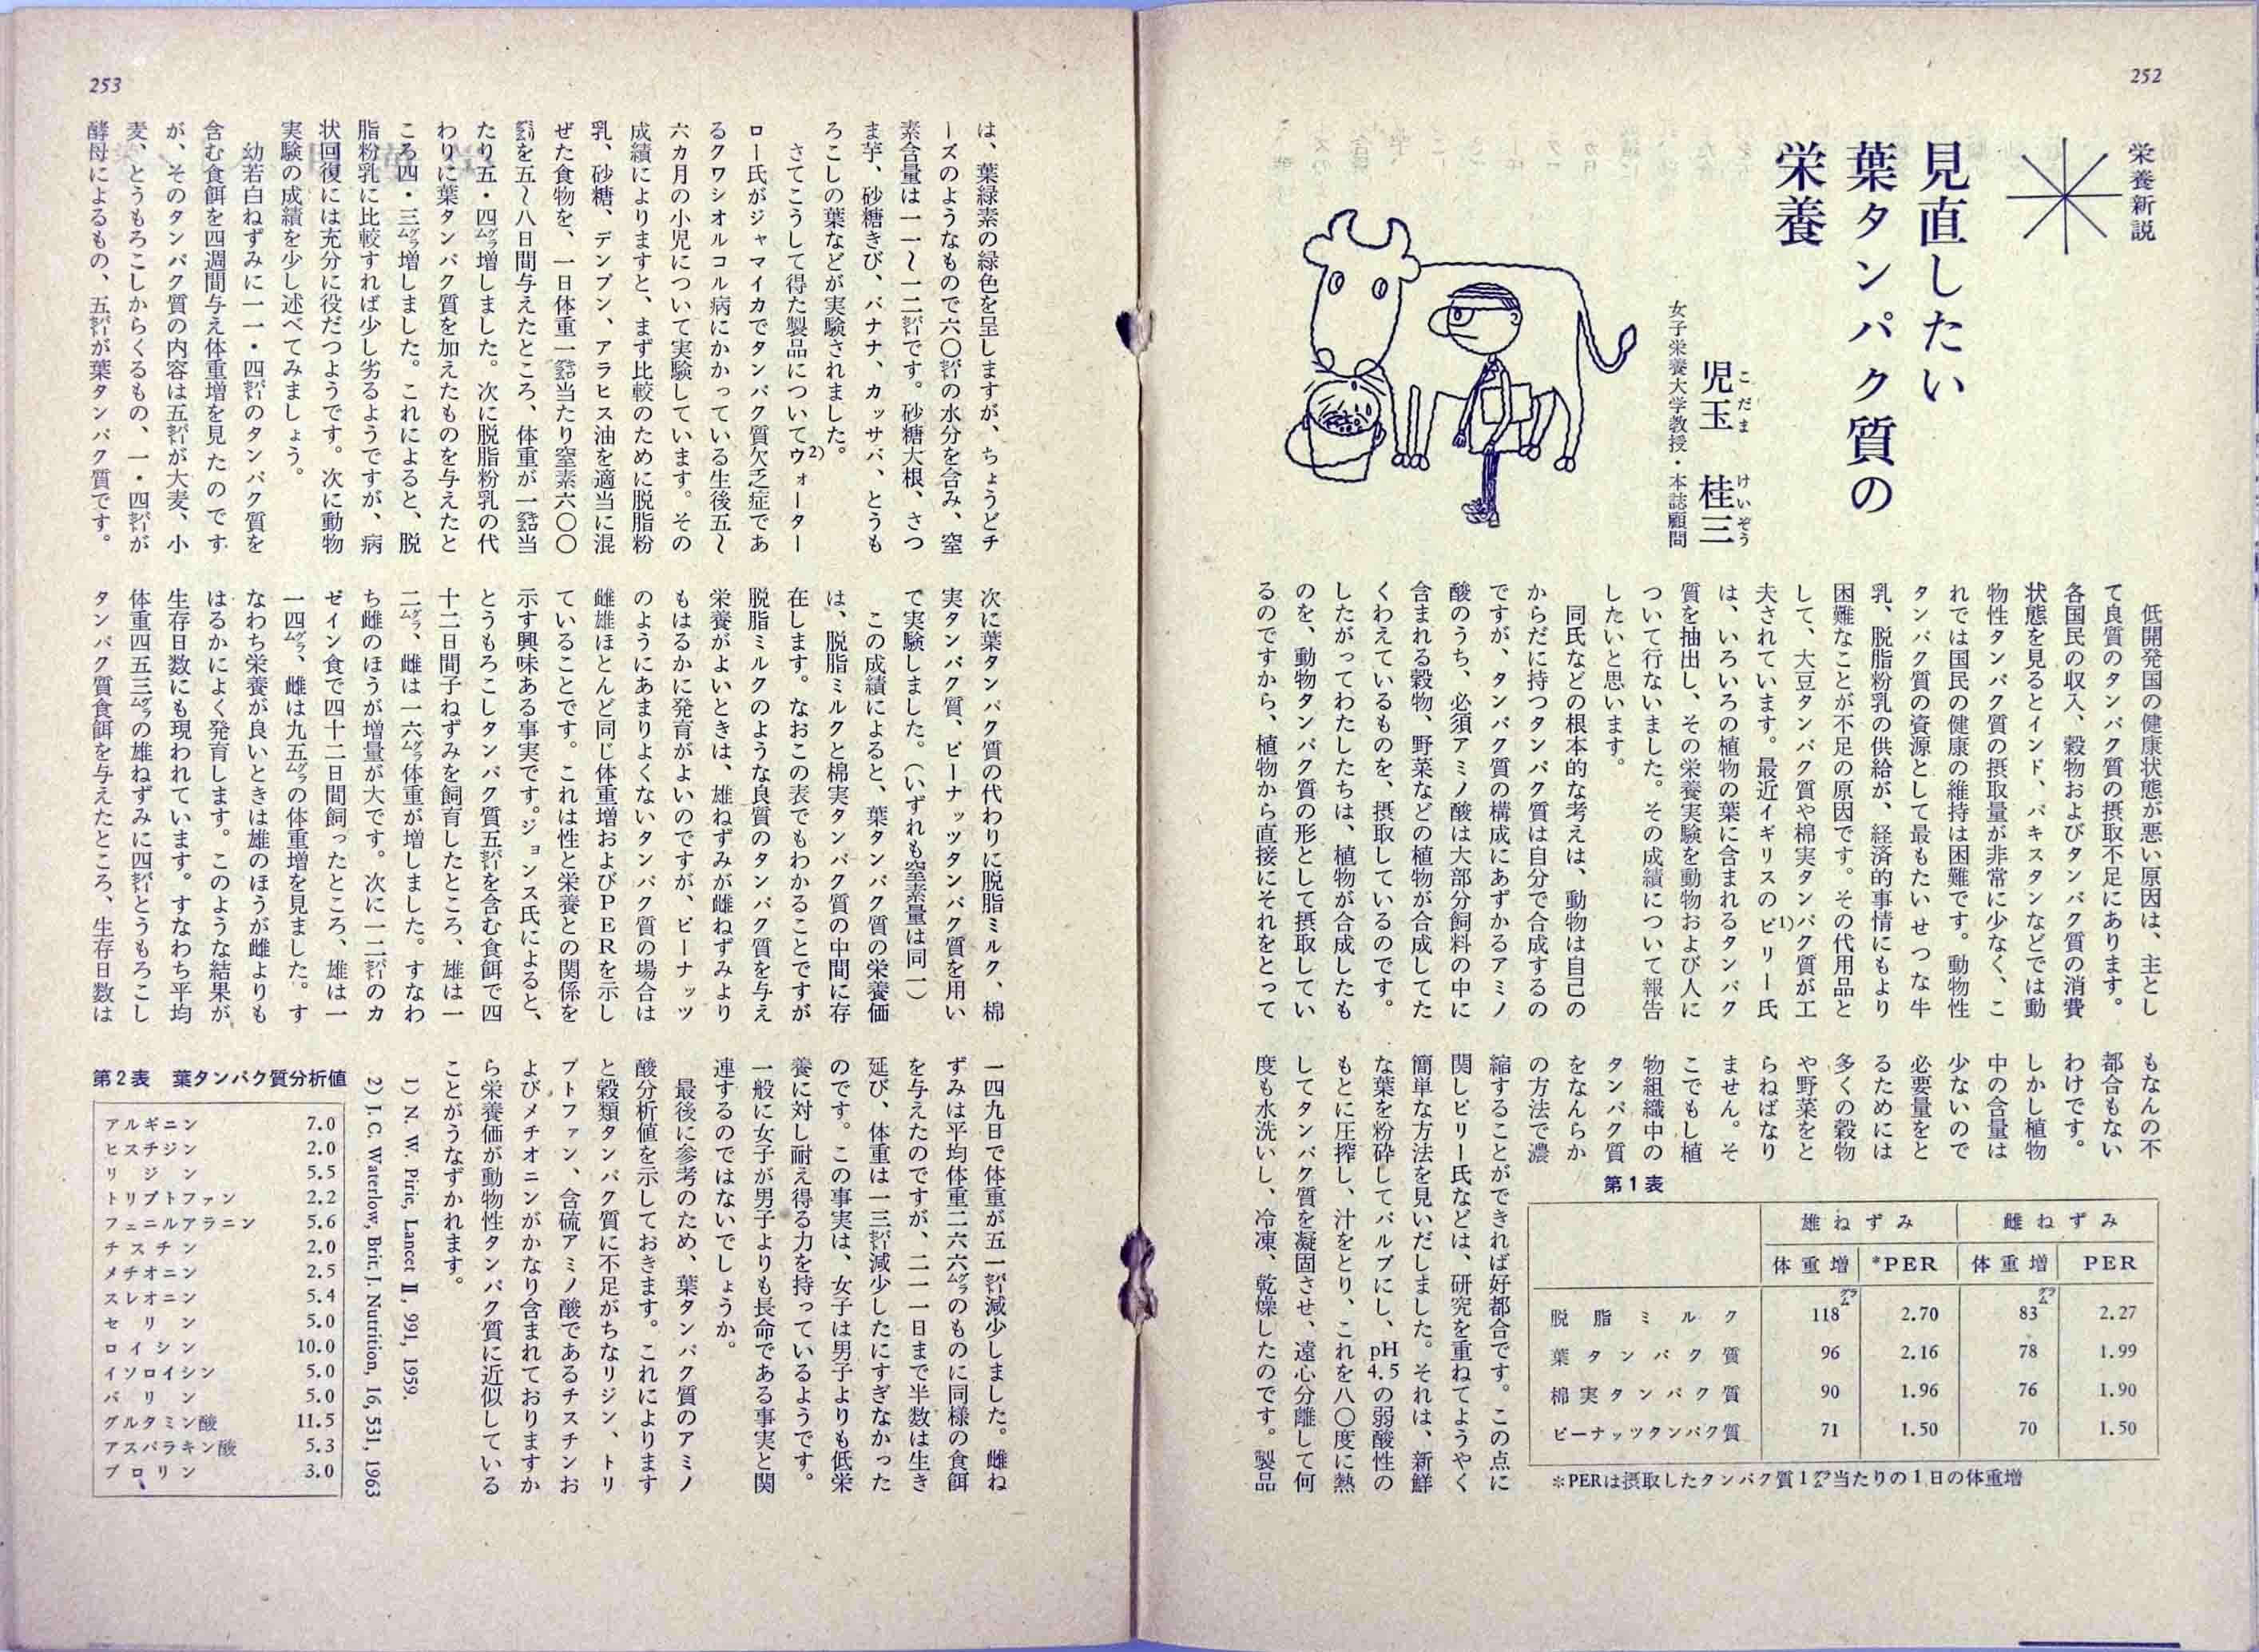 252
栄養新説
見直したい
葉タンパク質の
栄養
児玉　桂三
こだま　けいぞう
女子栄養大学教授・本誌顧問
低開発国の健康状態が悪い原因は、主とし
て良質のタンパク質の摂取不足にあります。
各国民の収入、穀物およびタンパク質の消費
状態を見るとインド、パキスタンなどでは動
物性タンパク質の摂取量が非常に少なく、こ
れでは国民の健康の維持は困難です。動物性
タンパク質の資源として最もたいせつな牛
乳、脱脂粉乳の供給が、経済的事情にもより
困難なことが不足の原因です。その代用品と
して、大豆タンパク質や棉実タンパク質が工
夫されています。最近イギリスのピリー氏1)
は、いろいろの植物の葉に含まれるタンパク
質を抽出し、その栄養実験を動物および人に
ついて行ないました。その成績について報告
したいと思います。
同氏などの根本的な考えは、動物は自己の
からだに持つタンパク質は自分で合成するの
ですが、タンパク質の構成にあずかるアミノ
酸のうち、必須アミノ酸は大部分飼料の中に
含まれる穀物、野菜などの植物が合成してた
くわえているものを、摂取しているのです。
したがってわたしたちは、植物が合成したも
のを、動物タンパク質の形として摂取してい
るのですから、植物から直接にそれをとって
もなんの不
都合もない
わけです。
しかし植物
中の含量は
少ないので
必要量をと
るためには
多くの穀物
や野菜をと
らねばなり
ません。そ
こでもし植
物組織中の
タンパク質
をなんらか
の方法で濃
縮することができれば好都合です。この点に
関しピリー氏などは、研究を重ねてようやく
簡単な方法を見いだしました。それは、新鮮
な葉を粉砕してパルプにし、pH4.5の弱酸性の
もとに圧搾し、汁をとり、これを八〇度に熱
してタンパク質を凝固させ、遠心分離して何
度も水洗いし、冷凍、乾燥したのです。製品
第1表
雄ねずみ　雌ねずみ
体重増　*PER　体重増　PER
脱脂ミルク　118グラム　2.70　83グラム　2.27
葉タンパク質　96　2.16　78　1.99
棉実タンパク質　90　1.96　76　1.90
ピーナッツタンパク質　71　1.50　70　1.50
*PERは摂取したタンパク質1グラム当たりの1日の体重増
253
は、葉緑素の緑色を呈しますが、ちょうどチ
ーズのようなもので六〇パーセントの水分を含み、窒
素含量は一一〜一二パーセントです。砂糖大根、さつ
ま芋、砂糖きび、バナナ、カッサバ、とうも
ろこしの葉などが実験されました。
さてこうして得た製品についてウォーター2)
ロー氏がジャマイカでタンパク質欠乏症であ
るクワシオルコル病にかかっている生後五〜
六カ月の小児について実験しています。その
成績によりますと、まず比較のために脱脂粉
乳、砂糖、デンプン、アラヒス油を適当に混
ぜた食物を、一日体重一キログラム当たり窒素六〇〇
ミリグラムを五〜八日間与えたところ、体重が一キログラム当
たり五・四グラム増しました。次に脱脂粉乳の代
わりに葉タンパク質を加えたものを与えたと
ころ四・三グラム増しました。これによると、脱
脂粉乳に比較すれば少し劣るようですが、病
状回復には充分に役だつようです。次に動物
実験の成績を少し述べてみましょう。
幼若白ねずみに一一・四パーセントのタンパク質を
含む食餌を四週間与え体重増を見たのです
が、そのタンパク質の内容は五パーセントが大麦、小
麦、とうもろこしからくるもの、一・四パーセントが
酵母によるもの、五パーセントが葉タンパク質です。
次に葉タンパク質の代わりに脱脂ミルク、棉
実タンパク質、ピーナッツタンパク質を用い
て実験しました。（いずれも窒素量は同一）
この成績によると、葉タンパク質の栄養価
は、脱脂ミルクと棉実タンパク質の中間に存
在します。なおこの表でもわかることですが
脱脂ミルクのような良質のタンパク質を与え
栄養がよいときは、雄ねずみが雌ねずみより
もはるかに発育がよいのですが、ピーナッツ
のようにあまりよくないタンパク質の場合は
雌雄ほとんど同じ体重増およびPERを示し
ていることです。これは性と栄養との関係を
示す興味ある事実です。ジョンス氏によると、
とうもろこしタンパク質五パーセントを含む食餌で四
十二日間子ねずみを飼育したところ、雄は一
二グラム、雌は一六グラム体重が増しました。すなわ
ち雌のほうが増量が大です。次に一二パーセントのカ
ゼイン食で四十二日間飼ったところ、雄は一
一四グラム、雌は九五グラムの体重増を見ました。す
なわち栄養が良いときは雄のほうが雌よりも
はるかによく発育します。このような結果が、
生存日数にも現われています。すなわち平均
体重四五三グラムの雄ねずみに四パーセントとうもろこし
タンパク質食餌を与えたところ、生存日数は
一四九日で体重が五一パーセント減少しました。雌ね
ずみは平均体重二六六グラムのものに同様の食餌
を与えたのですが、二一一日まで半数は生き
延び、体重は一三パーセント減少したにすぎなかった
のです。この事実は、女子は男子よりも低栄
養に対し耐え得る力を持っているようです。
一般に女子が男子よりも長命である事実と関
連するのではないでしょうか。
最後に参考のため、葉タンパク質のアミノ
酸分析値を示しておきます。これによります
と穀類タンパク質に不足がちなリジン、トリ
プトファン、含硫アミノ酸であるチスチンお
よびメチオニンがかなり含まれておりますか
ら栄養価が動物性タンパク質に近似している
ことがうなずかれます。
1) N. W. Pirie, Lancet Ⅱ, 991, 1959.
2) J. C. Waterlow, Brit. J. Nutrition, 16, 531, 1963
第2表　葉タンパク質分析値
アルギニン　7.0
ヒスチジン　2.0
リジン　5.5
トリプトファン　2.2
フェニルアラニン　5.6
チスチン　2.0
メチオニン　2.5
スレオニン　5.4
セリン　5.0
ロイシン　10.0
イソロイシン　5.0
バリン　5.0
グルタミン酸　11.5
アスパラキン酸　5.3
プロリン　3.0